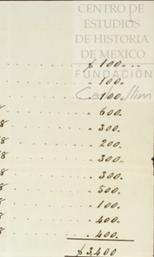 CENTRO DE
ESTUDIOS
DE HISTORIA
DE MEXICO
FUNDACIÓN
Slim
$ 100..
" 100.
" 100.
8 " 600.
8 " 300.
8 " 200.
8 " 300.
8 " 300.
8 " 500.
8 " 100.
8 " 400.
8 " 400.
$ 3,400